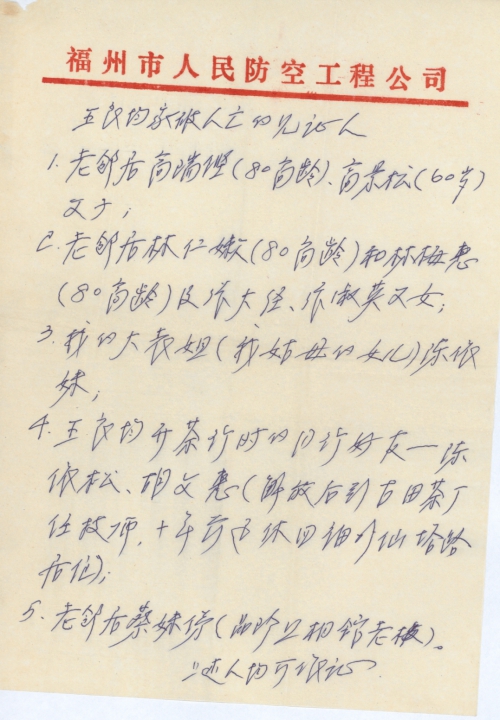 福州市人民防空工程公司
王良均家破人亡的见证人
1. 老邻居高瑞煋(80高龄)、高景松(60岁)
父子;
2. 老邻居林仁嫩(80高龄)和林梅惠
(80高龄)及张大任、张淑英父女;
3. 我的大表姐(我姑母的女儿)陈依
妹;
4. 王良均开茶行时的同行好友一陈
依松、胡文惠(解放后到古田茶厂
任技师,十年前退休回福州仙塔路
居住);
5. 老邻居蔡妹俤(相馆老板)。
上述人均可作证